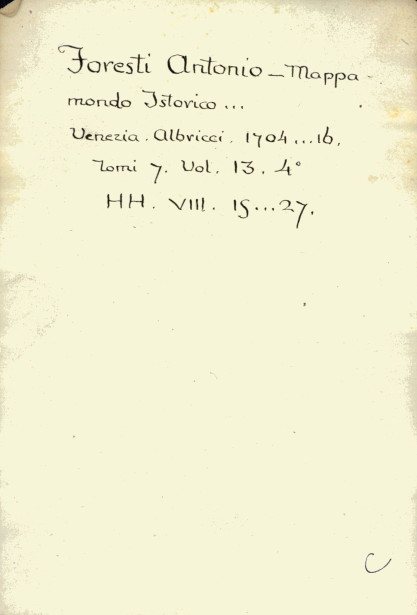 Foresti Antonio - Mappa-
mondo Istorico ...
Venezia. Albricci. 1704...16.
Tomi 7. Vol. 13. 4°
HH. VIII. 15...27.
C